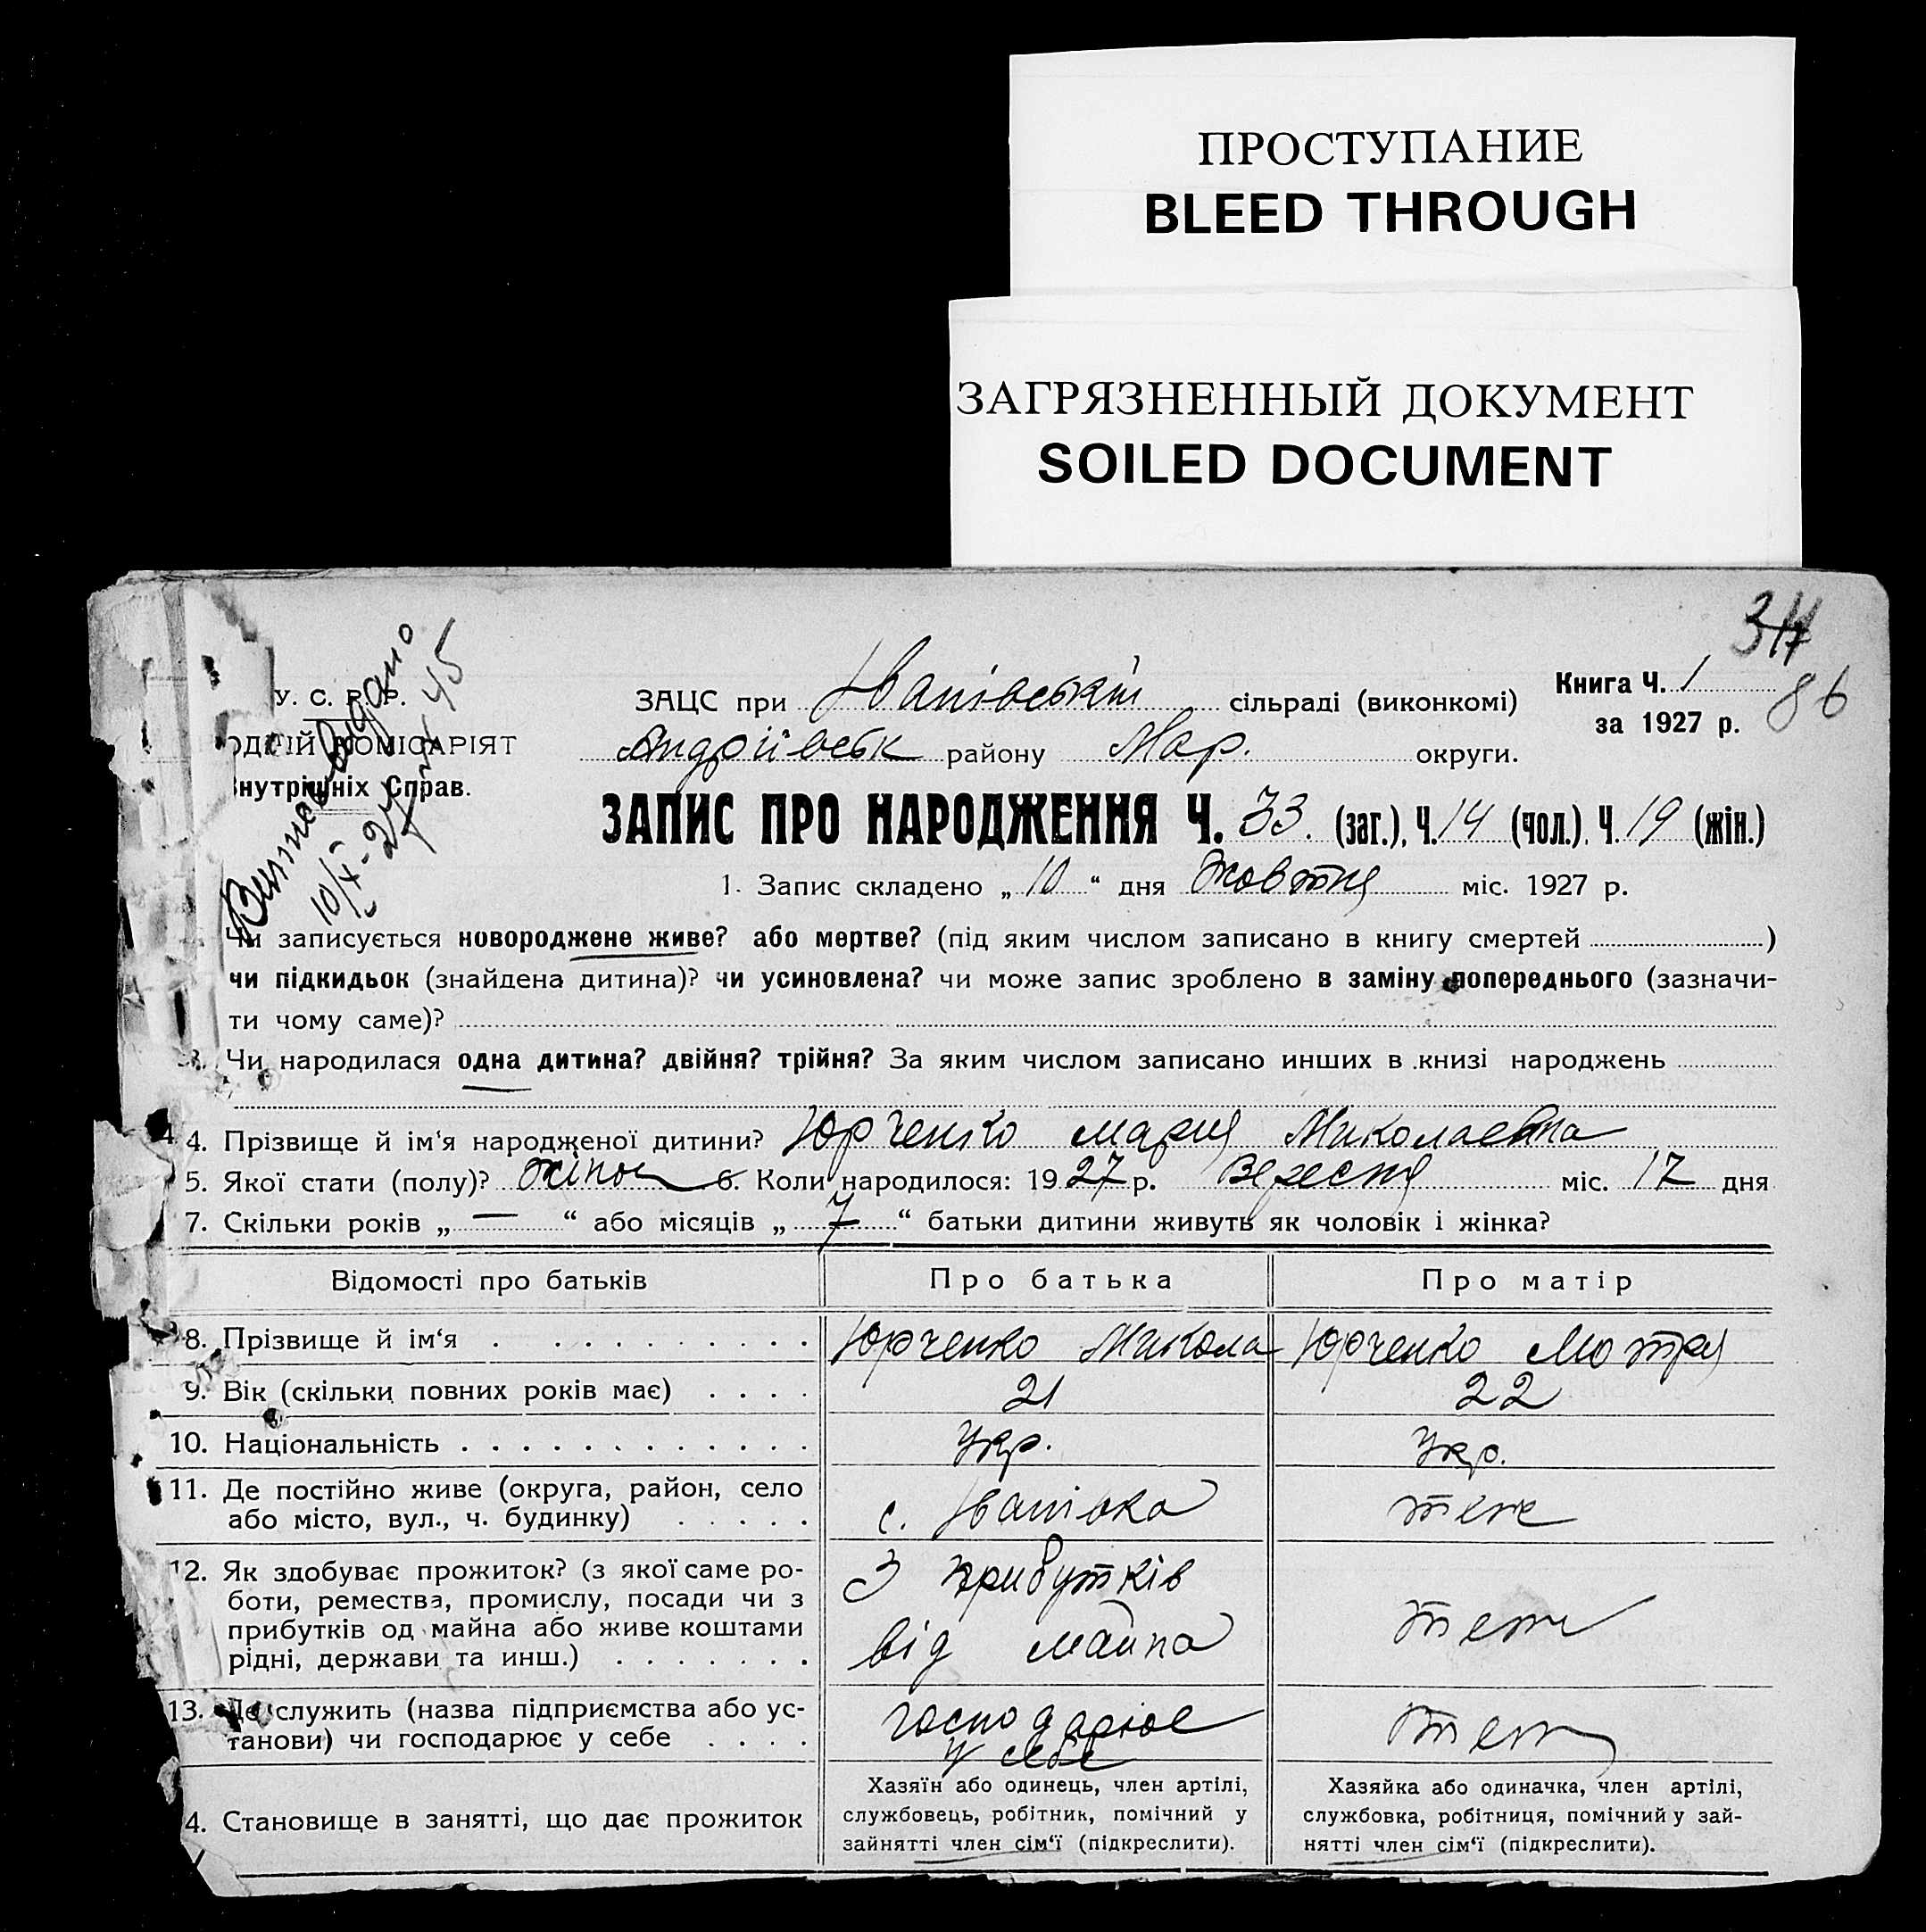 ПРОСТУПАНИЕ
BLEED THROUGH
ЗАГРЯЗНЕННЫЙ ДОКУМЕНТ
SOILED DOCUMENT
86
У. С. Р. Р.
ОДНІЙ КОМІСАРІЯТ
Внутрішніх Справ.
Витяг видано
10/X-27
45
ЗАЦС при Іванівській сільраді (виконкомі)
Книга Ч. 1
за 1927 р.
Андріївськ району Мар. округи.
ЗАПИС ПРО НАРОДЖЕННЯ Ч. 33. (заг.), Ч. 14 (чол.), Ч. 19 (жін.)
1. Запис складено „ 10 “ дня жовтня міс. 1927 р.
Чи записується новороджене живе? або мертве? (під яким числом записано в книгу смертей )
чи підкидьок (знайдена дитина)? чи усиновлена? чи може запис зроблено в заміну попереднього (зазначи-
ти чому саме)?
3. Чи народилася одна дитина? двійня? трійня? За яким числом записано инших в книзі народжень
4. Прізвище й ім‘я народженої дитини? Юрченко Мария Миколаевна
5. Якої стати (полу)? жіноч 6. Коли народилося: 1927 р. Вересня міс. 17 дня
7. Скільки років „ — “ або місяців „ 7 “ батьки дитини живуть як чоловік і жінка?
Відомості про батьків Про батька Про матір
8. Прізвище й ім‘я Юрченко Микола Юрченко Мотря
9. Вік (скільки повних років має) 21 22
10. Національність Укр. Укр.
11. Де постійно живе (округа, район, село
або місто, вул., ч. будинку) с. Іванівка теж
12. Як здобуває прожиток? (з якої саме ро-
боти, ремества, промислу, посади чи з
прибутків од майна або живе коштами
рідні, держави та инш.)
З прибутків
від майна
теж
13. Де служить (назва підприємства або ус-
танови) чи господарює у себе
господарює
у себе
теж
4. Становище в занятті, що дає прожиток
Хазяїн або одинець, член артілі,
службовець, робітник, помічний у
зайнятті член сім‘ї (підкреслити).
Хазяйка або одиначка, член артілі,
службовка, робітниця, помічний у зай-
нятті член сім‘ї (підкреслити).